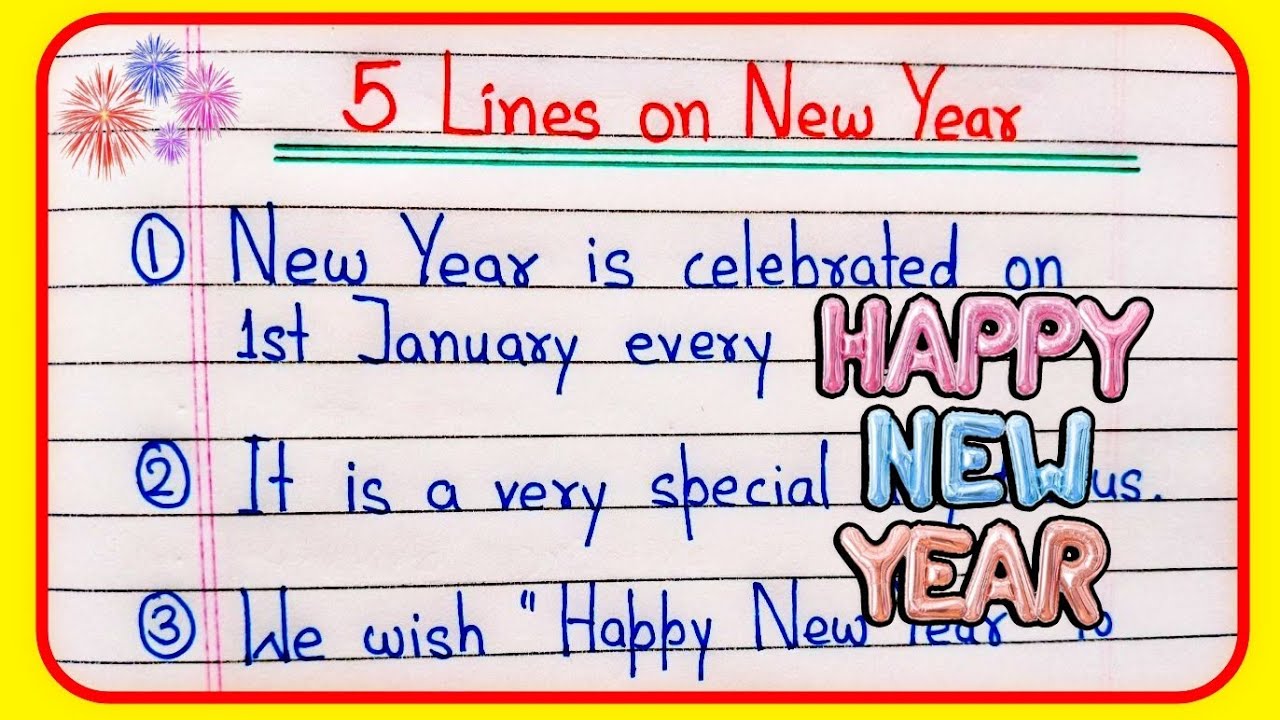 5 Lines on New Year
① New Year is celebrated on
1st January every
② It is a very special us.
③ We wish "Happy New Year" to
HAPPY
NEW
YEAR